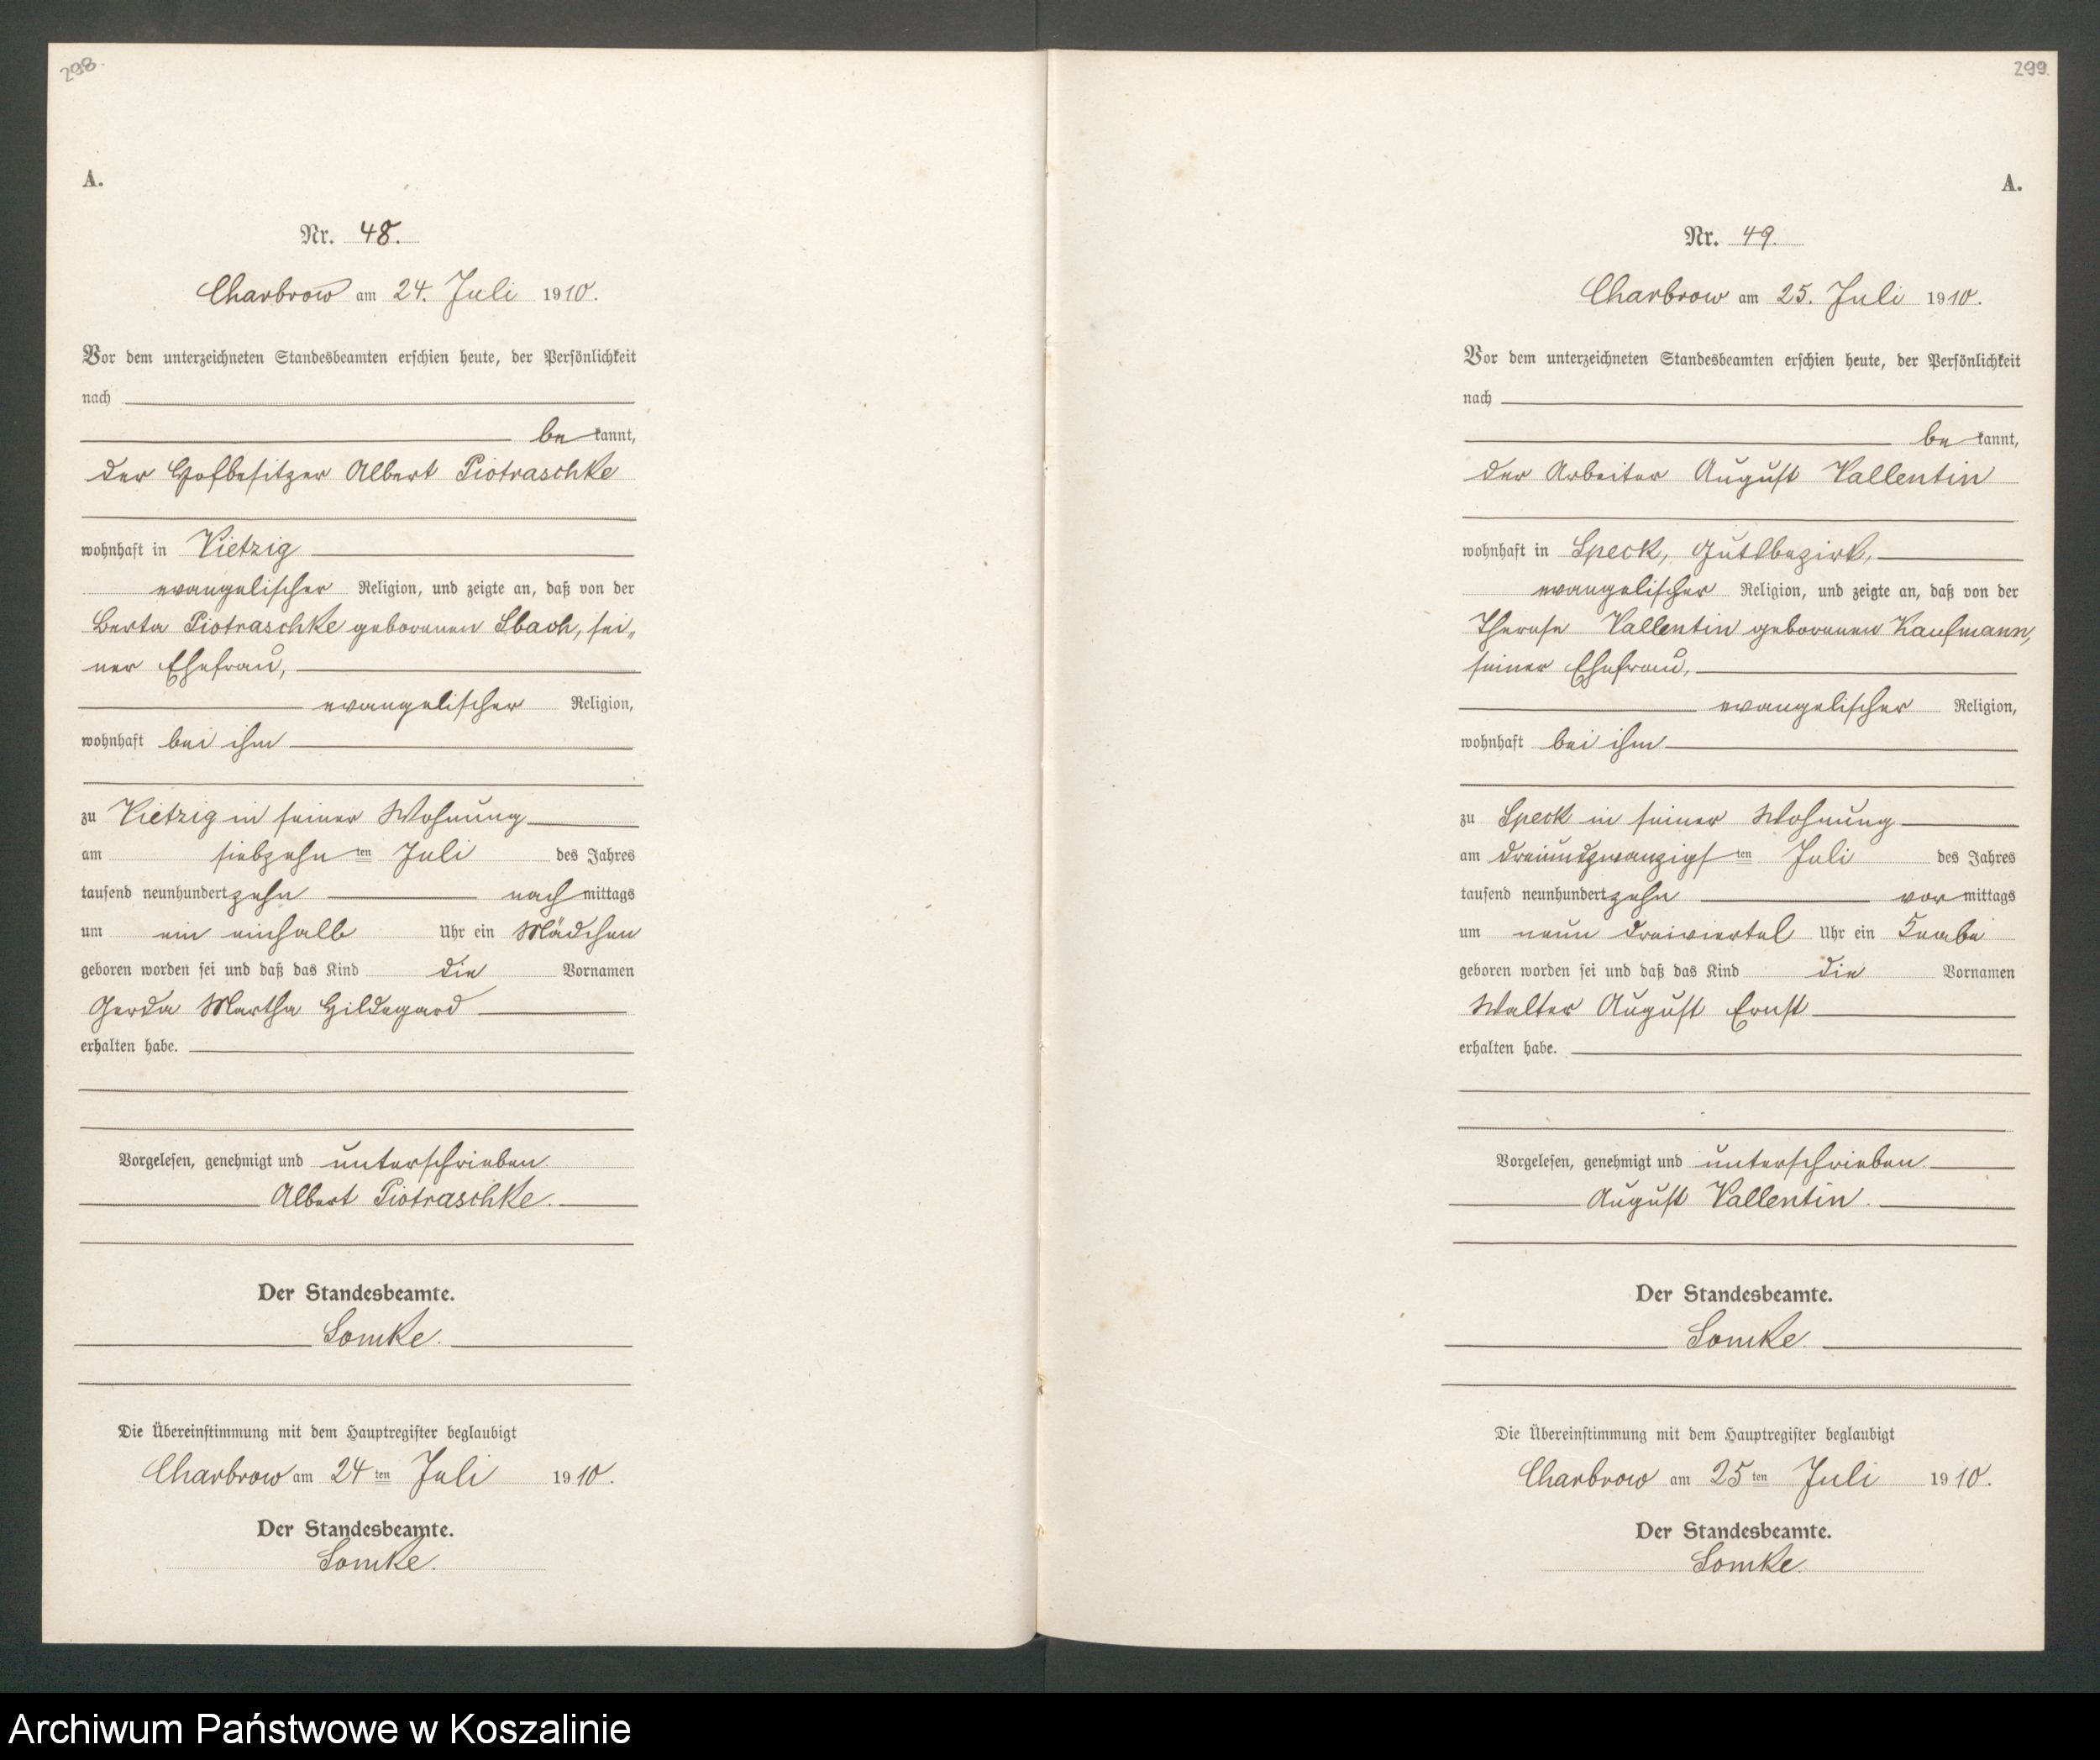 298.
A.
Nr. 48.
Charbrow am 24. Juli 1910.
Vor dem unterzeichneten Standesbeamten erschien heute, der Persönlichkeit
nach
be kannt,
der Hofbesitzer Albert Piotraschke
wohnhaft in Vietzig
evangelischer Religion, und zeigte an, daß von der
Berta Piotraschke geborenen Sbach, sei„
ner Ehefrau,
evangelischer Religion,
wohnhaft bei ihm
zu Vietzig in seiner Wohnung
am siebzehn ten Juli des Jahres
tausend neunhundert zehn nach mittags
um ein einhalb Uhr ein Mädchen
geboren worden sei und daß das Kind die Vornamen
Gerda Martha Hildegard
erhalten habe.
Vorgelesen, genehmigt und unterschrieben
Albert Piotraschke.
Der Standesbeamte.
Somke.
Die Übereinstimmung mit dem Hauptregister beglaubigt
Charbrow am 24 ten Juli 1910.
Der Standesbeamte.
Somke.
299.
A.
Nr. 49.
Charbrow am 25. Juli 1910.
Vor dem unterzeichneten Standesbeamten erschien heute, der Persönlichkeit
nach
be kannt,
der Arbeiter August Vallentin
wohnhaft in Speck, Gutsbezirk,
evangelischer Religion, und zeigte an, daß von der
Therese Vallentin geborenen Kaufmann,
seiner Ehefrau,
evangelischer Religion,
wohnhaft bei ihm
zu Speck in seiner Wohnung
am dreiundzwanzigs ten Juli des Jahres
tausend neunhundert zehn vor mittags
um neun dreiviertel Uhr ein Knabe
geboren worden sei und daß das Kind die Vornamen
Walter August Ernst
erhalten habe.
Vorgelesen, genehmigt und unterschrieben
August Vallentin.
Der Standesbeamte.
Somke.
Die Übereinstimmung mit dem Hauptregister beglaubigt
Charbrow am 25 ten Juli 1910.
Der Standesbeamte.
Somke.
Archiwum Państwowe w Koszalinie